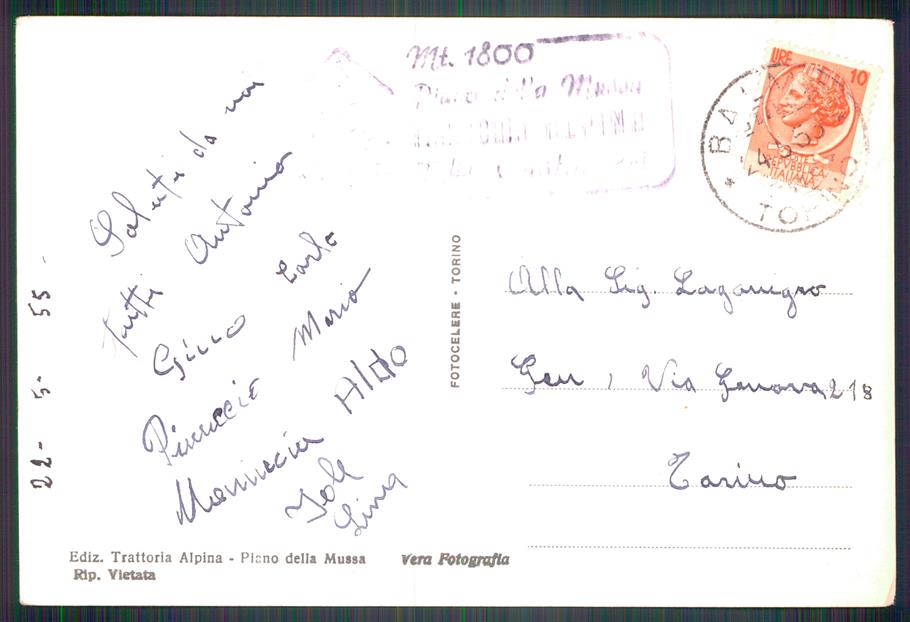 Mt. 1800
Piano della Mussa
LIRE 10
REPVBBLICA
ITALIANA
BA
TO
Saluti da noi
tutti Antonio
Gino Carlo
Pinuccio Mario
Mariuccia Aldo
Iole
Lina
22 - 5 - 55 -
FOTOCELERE - TORINO
Alla Sig. Laganigro
Gen, Via Genova, 218
Torino
Ediz. Trattoria Alpina - Piano della Mussa
Rip. Vietata
Vera Fotografia